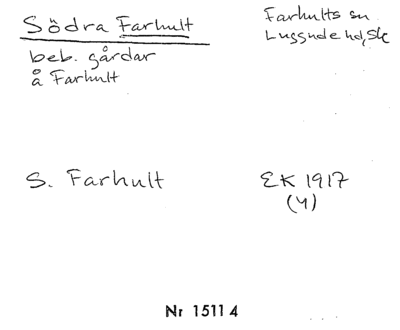 Södra Farhult
Farhults sn
Luggude hd, Sk
beb. gårdar
å Farhult
S. Farhult
EK 1917
(4)
Nr 15114